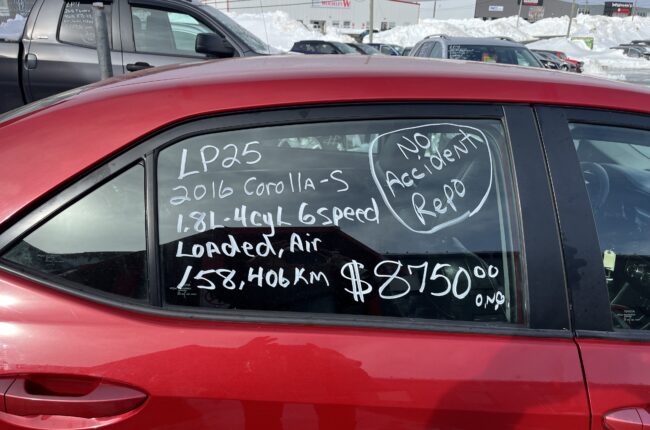 LP25
2016 COROLLA-S
1.8L-4cyL 6speed
LOADED, AIR
158,406KM
NO
Accident
Repo
$8750.00
O.N.O.